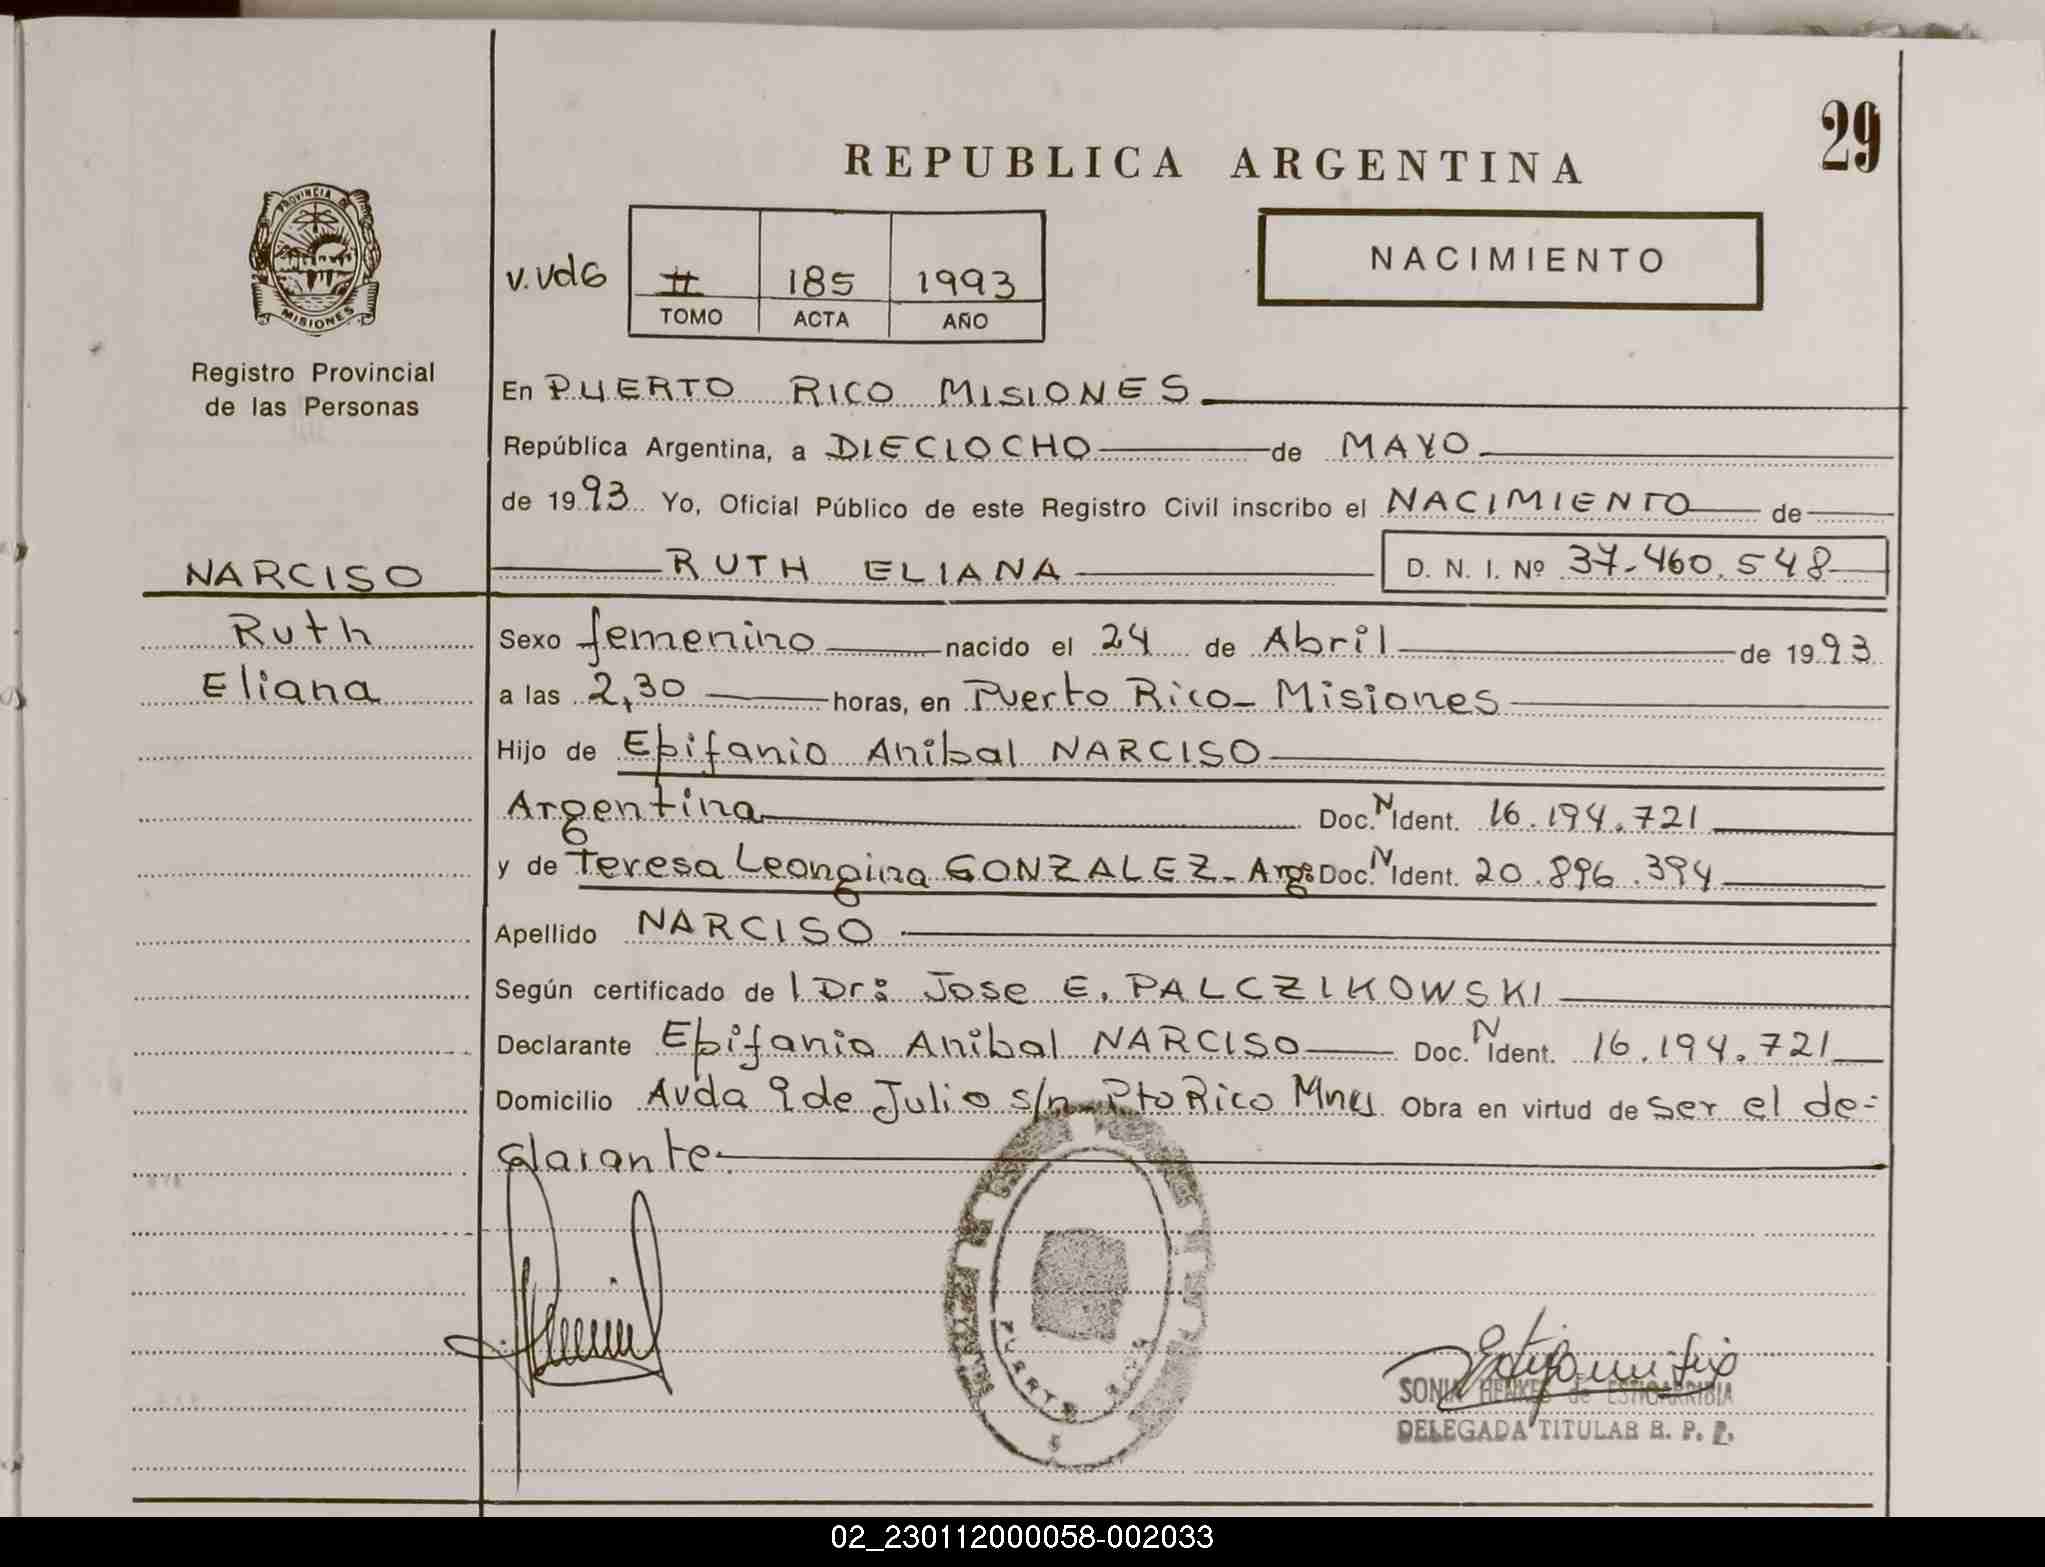 29
REPUBLICA ARGENTINA
PROVINCIA DE
MISIONES
Registro Provincial
de las Personas
V. VdG
II 185 1993
TOMO ACTA AÑO
NACIMIENTO
En PUERTO RICO MISIONES
República Argentina, a DIECIOCHO de MAYO
de 1993 Yo, Oficial Público de este Registro Civil inscribo el NACIMIENTO de
NARCISO
RUTH ELIANA D. N. I. Nº 37.460.548
Ruth
Eliana
Sexo femenino nacido el 24 de Abril de 1993
a las 2,30 horas, en Puerto Rico - Misiones
Hijo de Epifanio Anibal NARCISO
Argentina Doc. N Ident. 16.194.721
y de Teresa Leongina GONZALEZ - Arg: Doc. N Ident. 20.896.394
Apellido NARCISO
Según certificado de l Dr: Jose E. PALCZIKOWSKI
Declarante Epifanio Anibal NARCISO Doc. N Ident. 16.194.721
Domicilio Avda 9 de Julio s/n Pto Rico Mnes Obra en virtud de ser el de-
clarante.
PUERTO RICO
SONIA HENKES de ESTIGARRIBIA
DELEGADA TITULAR R. P. P.
02_230112000058-002033